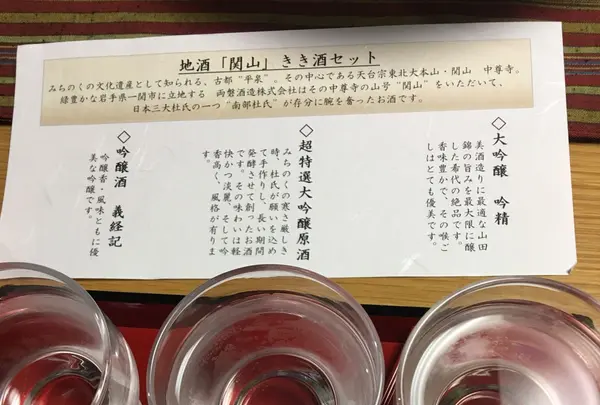 地酒「関山」きき酒セット
みちのくの文化遺産として知られる、古都"平泉"。その中心である天台宗東北大本山・関山　中尊寺。
緑豊かな岩手県一関市に立地する　両磐酒造株式会社はその中尊寺の山号"関山"をいただいて、
日本三大杜氏の一つ"南部杜氏"が存分に腕を奮ったお酒です。
◇大吟醸　吟精
美酒造りに最適な山田
錦の旨みを最大限に醸
した希代の絶品です。
香味豊かで、その喉ご
しはとても優美です。
◇超特選大吟醸原酒
みちのくの寒さ厳しき
時、杜氏が願いを込め
て手作りし、長い期間
発酵させて創ったお酒
です。その味わいは軽
快かつ淡麗、そして吟
香高く、風格が有りま
す。
◇吟醸酒　義経記
吟醸香・風味ともに優
美な吟醸です。